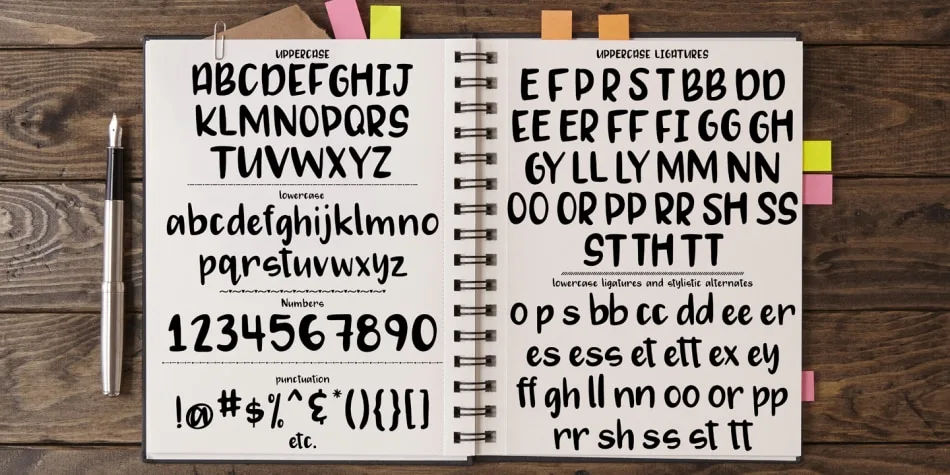 UPPERCASE
ABCDEFGHIJ
KLMNOPQRS
TUVWXYZ
lowercase
abcdefghijklmno
pqrstuvwxyz
Numbers
1234567890
punctuation
!@#$%^&*(){}[]
etc.
UPPERCASE LIGATURES
E F P R S T BB DD
EE ER FF FI GG GH
GY LL LY MM NN
OO OR PP RR SH SS
ST TH TT
lowercase ligatures and stylistic alternates
o p s bb cc dd ee er
es ess et ett ex ey
ff gh ll nn oo or pp
rr sh ss st tt